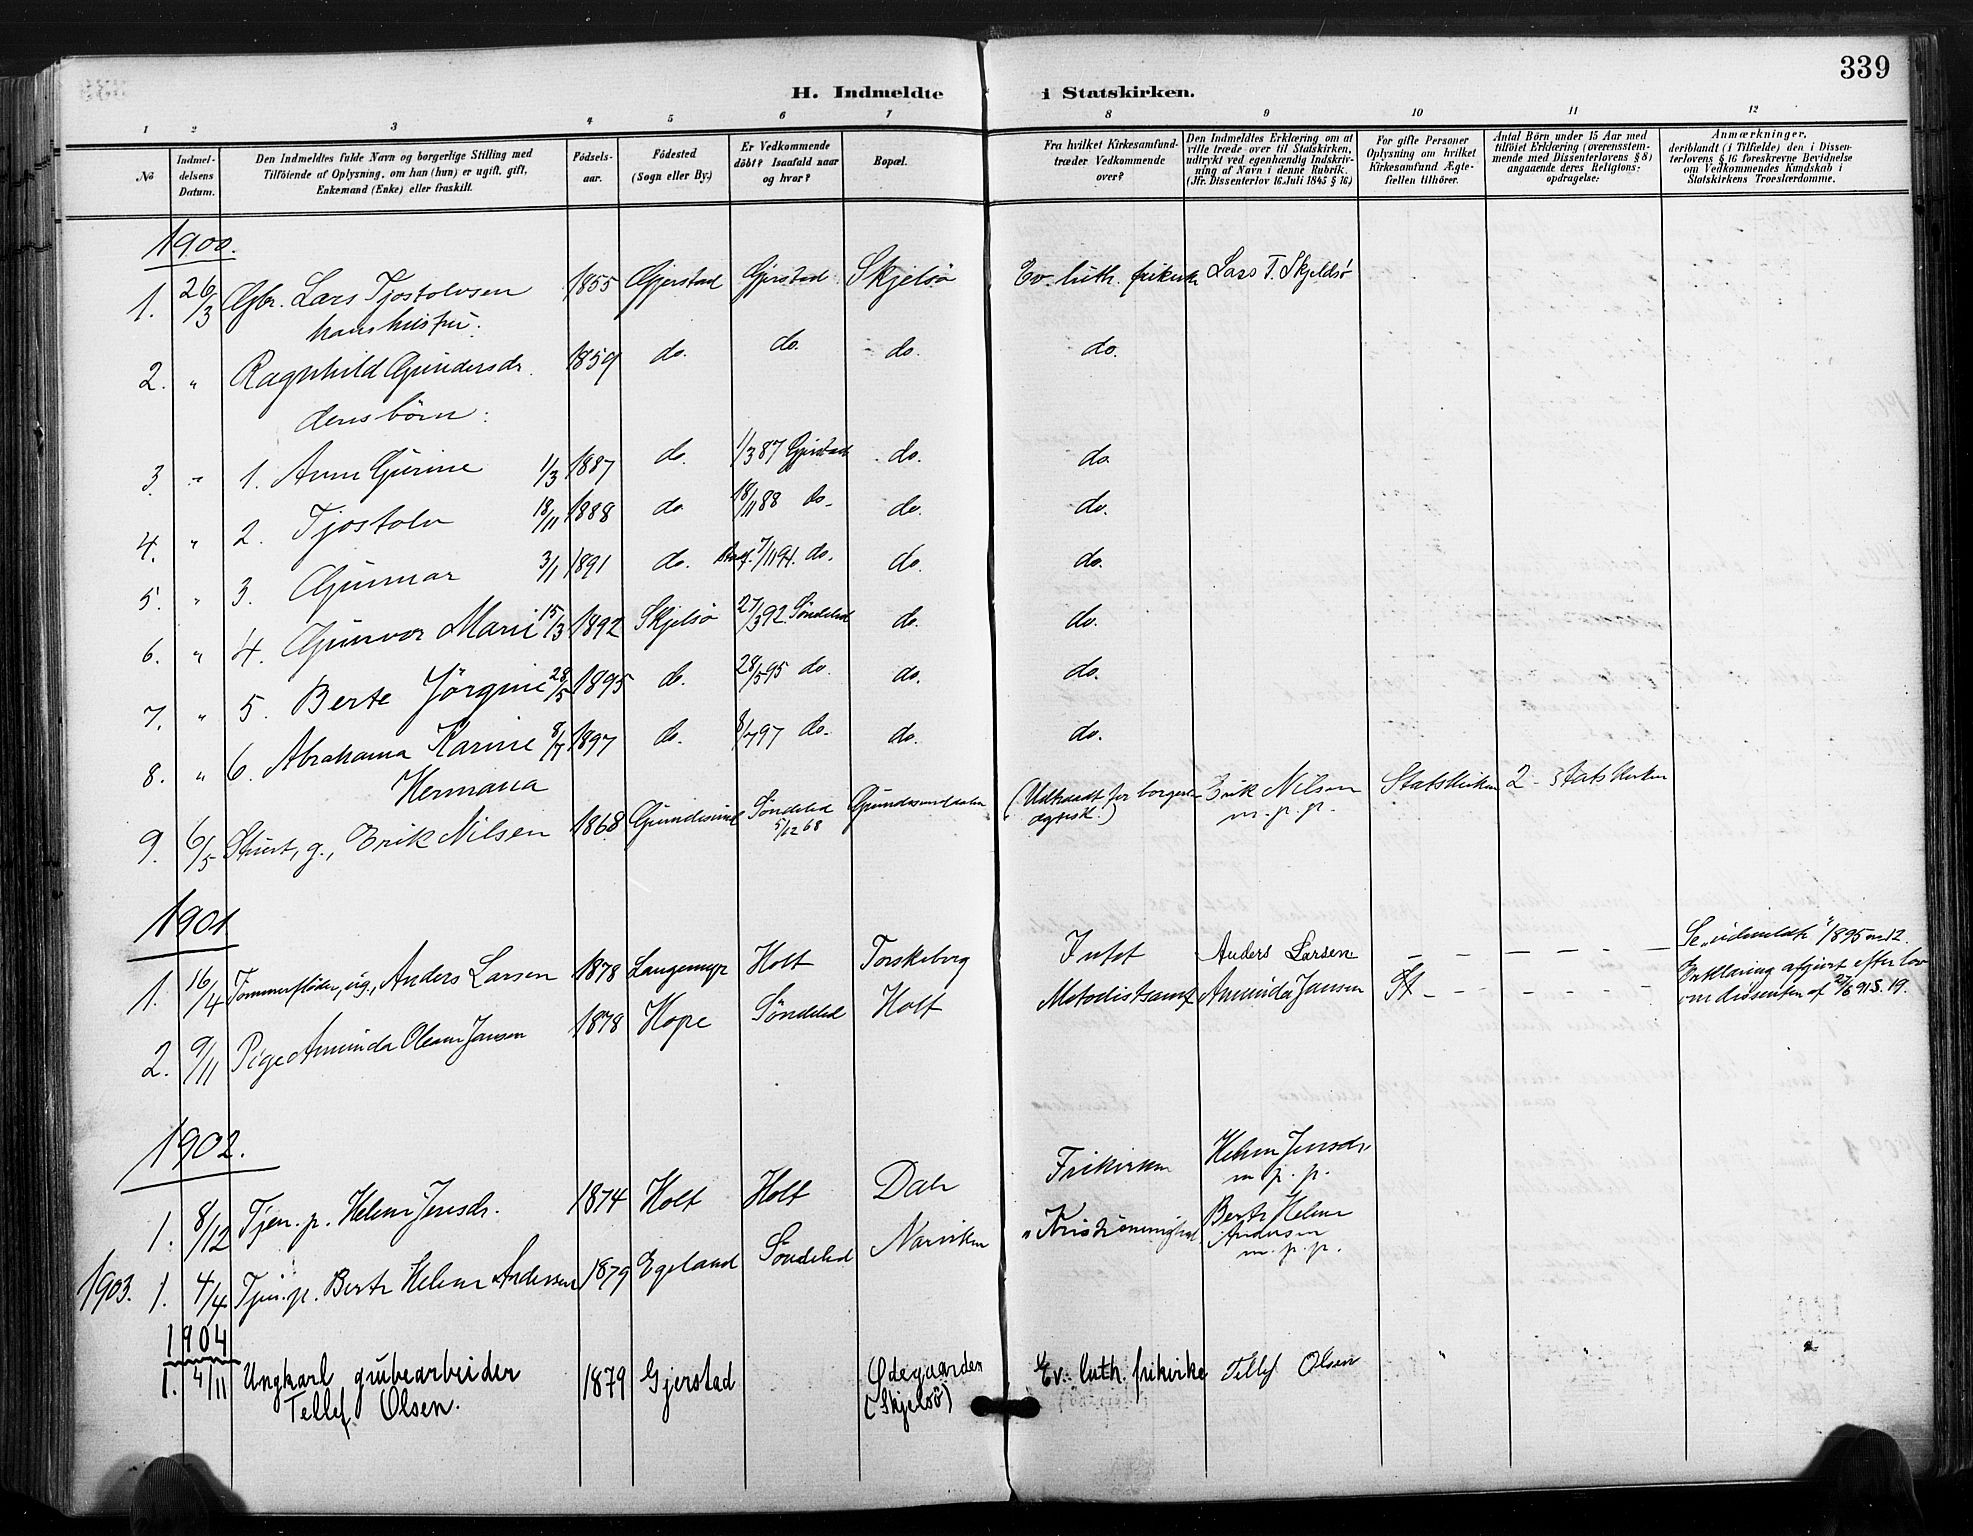 339
H. Indmeldte i Statskirken.
1 2 3 4 5 6 7 8 9 10 11 12
No
Indmel-
delsens
Datum.
Den Indmeldtes fulde Navn og borgerlige Stilling med
Tilföiende af Oplysning, om han (hun) er ugift, gift,
Enkemand (Enke) eller fraskilt.
Födsels-
aar.
Födested
(Sogn eller By.)
Er Vedkommende
döbt? Isaafald naar
og hvor?
Bopæl.
Fra hvilket Kirkesamfund
træder Vedkommende
over?
Den Indmeldtes Erklæring om at
ville træde over til Statskirken,
udtrykt ved egenhændig Indskriv-
ning af Navn i denne Rubrik.
(Jfr. Dissenterlov 16. Juli 1845 § 16)
For gifte Personer
Oplysning om hvilket
Kirkesamfund Ægte-
fællen tilhörer.
Antal Börn under 15 Aar med
tilföiet Erklæring (overensstem-
mende med Dissenterlovens § 8)
angaaende deres Religions-
opdragelse.
Anmærkninger,
deriblandt (i Tilfælde) den i Dissen-
terlovens § 16 foreskrevne Bevidnelse
om Vedkommendes Kundskab i
Statskirkens Troeslærdomme.
1900.
1. 26/3 Gbr. Lars Tjostolvsen 1855 Gjerstad Gjerstad Skjelsö Ev. luth. frikirk Lars T. Skjeldsø
hans hustru:
2. " Ragnhild Gundersdr. 1859 do. do. do. do.
deres börn:
3. " 1. Anne Gurine 1/3 1887 do. 1/3 87 Gjerstad do. do.
4. " 2. Tjostolv 18/11 1888 do 18/11 88 do. do. do.
5. " 3. Gunnar 3/1 1891 do. 7/11 91. do. do. do.
6. " 4. Gunvor Marie 15/3 1892 Skjelsö 27/3 92 Söndeled do. do.
7. " 5. Berte Jörgine 28/5 1895 do. 28/5 95 do. do. do.
8. " 6. Abrahama Karine 8/7 1897 do. 8/7 97 do. do. do.
Hermana
9. 6/5 g., Erik Nilsen 1868 Söndeled (Udtraadt for borger- Erik Nilsen Statskirken 2 - statskirken
5/12 68 m. p. p.
1901
1. 16/4 Tømmerfløder, ug., Anders Larsen 1878 Langemyr Holt Torskeberg Intet Anders Larsen — — — — — Se "udmeldte" 1895 nr 2.
2. 9/11 Pige Amunda Olsen Jansen 1878 Hope Söndeled Holt Metodistsamf. Amunda Jansen Erklæring afgivet efter lov
om dissenter af 27/6 91 S. 19.
1902.
1. 8/12 Tjen. p. Helene Jensdr. 1874 Holt Holt Dale Frikirken Helene Jensdr.
m. p. p.
1903. 1. 4/4 Tjen. p. Berte Helene Andersen 1879 Egeland Söndeled Narviken "Kristi menighed Berte Helene
Andersen
m. p. p.
1904
1. 4/11 Ungkarl grubearbeider 1879 Gjerstad Ødegaarden Ev. luth. frikirke Tellef Olsen "
Tellef Olsen. (Skjelsö)